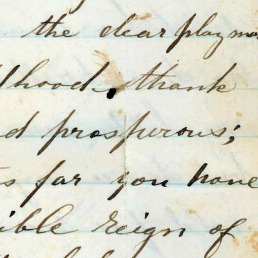 the dear playma
hood, thank
d prosperous;
s far you have
ible reign of